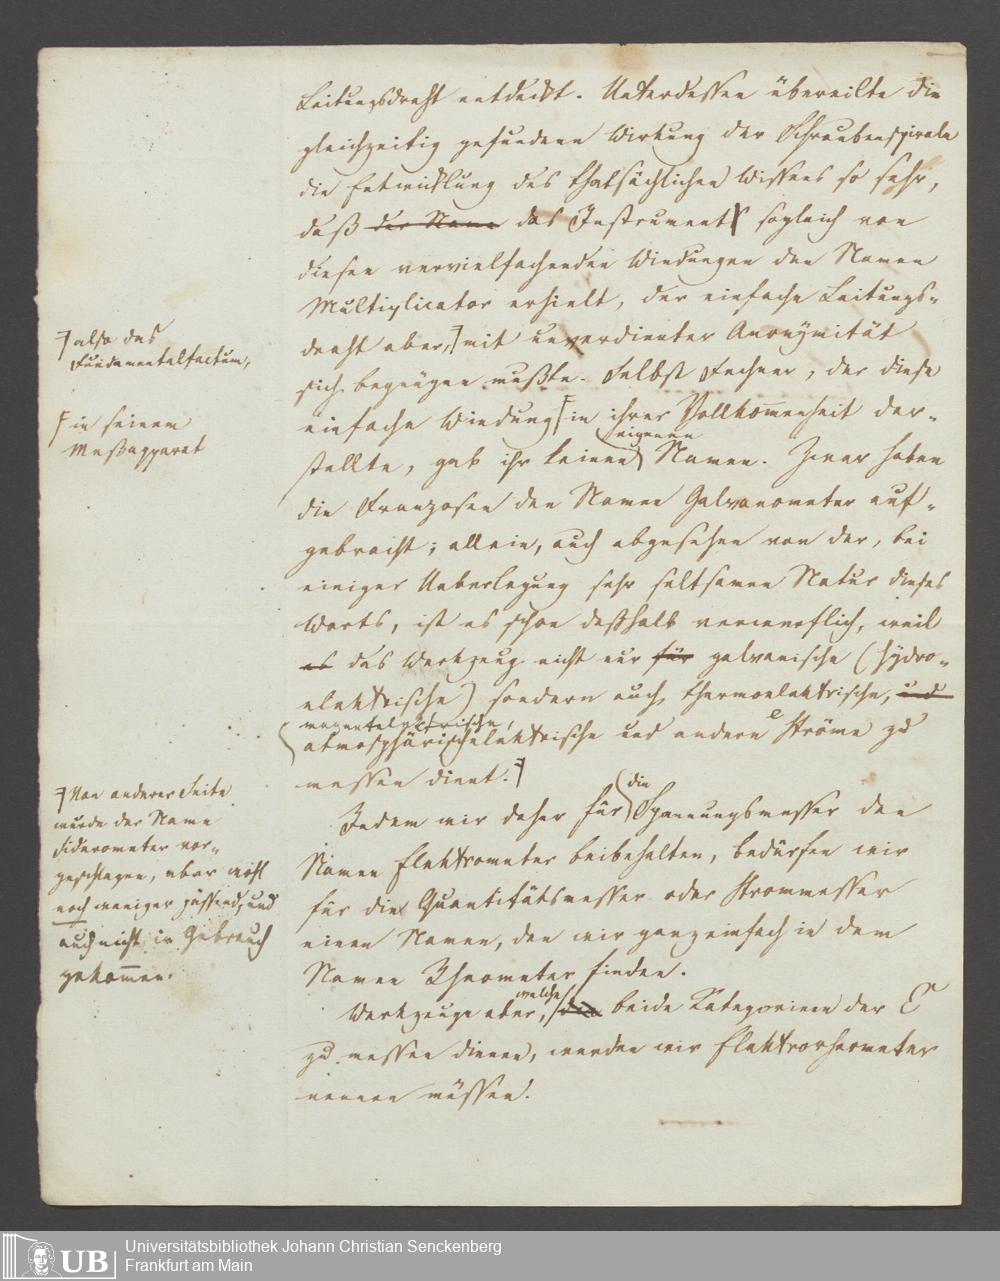 Leitungsdraht entdeckt. Unterdessen übereilte die
gleichzeitig gefundene Wirkung der Schraubenspirale
die Entwicklung des thatsächlichen Wissens so sehr,
daß der Name das Instrument sogleich von
diesen vervielfachenden Windungen den Namen
Multiplicator erhielt, der einfache Leitungs-
draht aber, mit unverdienter Anonymität
also das
Fundamentalfactum,
sich begnügen mußte. Selbst Fechner, der diese
einfache Windung in ihrer Vollkommenheit dar-
in seinem
Meßapparat
eigenen
stellte, gab ihr keinen Namen. Zwar haben
die Franzosen den Namen Galvanometer auf-
gebracht; allein, auch abgesehen von der, bei
einiger Ueberlegung sehr seltsamen Natur dieses
Worts, ist es schon deßhalb verwerflich, weil
es das Werkzeug nicht nur für galvanische (hydro-
elektrische) sondern auch thermoelektrische, und
magnetelektrische,
atmosphärischelektrische und andere Ströme zu
messen dient.
Von anderer Seite
wurde der Name
Siderometer vor-
geschlagen, aber wohl
noch weniger passend, und
auch nicht in Gebrauch
gekommen.
die
Indem wir daher für Spannungsmesser den
Namen Elektrometer beibehalten, bedürfen wir
für die Quantitätsmesser oder Strommesser
einen Namen, den wir ganz einfach in dem
Namen Rheometer finden.
welche
Werkzeuge aber, die beide Kategorieen der E
zu messen dienen, werden wir Elektrorheometer
nennen müssen.
UB
Universitätsbibliothek Johann Christian Senckenberg
Frankfurt am Main